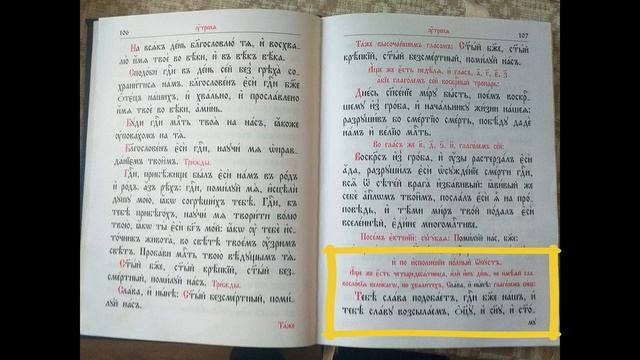 106
Оу҆́тренѧ
На всѧ́къ де́нь благословлю̀ тѧ̀, и҆ восхва-
лю̀ и҆́мѧ твоѐ во вѣ́ки, и҆ въ вѣ́къ вѣ́ка.
Сподо́би гдⷭ҇и въ де́нь се́й без̾ грѣха̀ со-
храни́тисѧ на́мъ. Благослове́нъ є҆сѝ гдⷭ҇и бж҃е
ѻ҆те́цъ на́шихъ, и҆ хва́льно, и҆ просла́влено
и҆́мѧ твоѐ во вѣ́ки, а҆ми́нь.
Бꙋ́ди гдⷭ҇и мл҃ть твоѧ̀ на на́съ, ꙗ҆́коже
ᲂу҆пова́хомъ на тѧ̀.
Благослове́нъ є҆сѝ гдⷭ҇и, наꙋчи́ мѧ ѡ҆прав-
да́ниємъ твои̑мъ. Три́жды.
Гдⷭ҇и, прибѣ́жище бы́лъ є҆сѝ на́мъ въ ро́дъ
и҆ ро́дъ. а҆́зъ рѣ́хъ: гдⷭ҇и, поми́лꙋй мѧ̀, и҆сцѣлѝ
дꙋ́шꙋ мою̀, ꙗ҆́кѡ согрѣши́хъ тебѣ̀. Гдⷭ҇и, къ
тебѣ̀ прибѣго́хъ, наꙋчи́ мѧ твори́ти во́лю
твою̀, ꙗ҆́кѡ ты̀ є҆сѝ бг҃ъ мо́й: ꙗ҆́кѡ ᲂу҆ тебє̀ и҆с-
то́чникъ живота̀, во свѣ́тѣ твоє́мъ ᲂу҆́зримъ
свѣ́тъ. Проба́ви мл҃ть вѣ́дꙋщымъ тѧ̀.
Ст҃ы́й бж҃е, ст҃ы́й крѣ́пкїй, ст҃ы́й без-
сме́ртный, поми́лꙋй на́съ. Три́жды.
Сла́ва, и҆ ны́нѣ: Ст҃ы́й безсме́ртный, поми́-
лꙋй на́съ.
Та́же
Оу҆́тренѧ
107
Та́же высоча́йшимъ гла́сомъ: Ст҃ы́й бж҃е, ст҃ы́й
крѣ́пкїй, ст҃ы́й безсме́ртный, поми́лꙋй на́съ.
А҆́ще же є҆́сть недѣ́лѧ, и҆ гла́съ, а҃, г҃, є҃, з҃
глаго́лемъ се́й воскрⷭ҇ный тропа́рь:
Дне́сь спⷭ҇нїе мі́рꙋ бы́сть, пое́мъ воскрⷭ҇-
шемꙋ и҆з̾ гро́ба, и҆ нача́льникꙋ жи́зни на́шеѧ:
разрꙋши́въ бо сме́ртїю сме́рть, побѣ́дꙋ дадѐ
на́мъ и҆ ве́лїю мл҃ть.
Во гла́съ же в҃, д҃, ѕ҃, и҃, глаго́лемъ се́й:
Воскрⷭ҇ъ и҆з̾ гро́ба, и҆ ᲂу҆́зы растерза́лъ є҆сѝ
а҆́да, разрꙋши́лъ є҆сѝ ѡ҆сꙋжде́нїе сме́рти гдⷭ҇и,
всѧ̑ ѿ сѣте́й врага̀ и҆зба́вивый: ꙗ҆ви́вый же
себѐ а҆пⷭ҇лѡмъ твои̑мъ, посла́лъ є҆сѝ ѧ҆̀ на про́-
повѣдь, и҆ тѣ́ми ми́ръ тво́й по́далъ є҆сѝ
вселе́ннѣй, є҆ди́не многомлⷭ҇тиве.
Посе́мъ є҆ктенїѝ: сꙋгꙋ́баѧ: Поми́лꙋй на́съ, бж҃е:
и҆ по и҆сполне́нїи по́лный ѿпꙋ́стъ.
А҆́ще же є҆́сть четыредесѧ́тница, и҆лѝ и҆́нъ де́нь, не и҆мѣ́ѧй сла-
восло́вїѧ вели́кагѡ, по хвали́техъ, Сла́ва, и҆ ны́нѣ: глаго́лемъ си́це:
Тебѣ̀ сла́ва подоба́етъ, гдⷭ҇и бж҃е на́шъ, и҆
тебѣ̀ сла́вꙋ возсыла́емъ, ѻ҆ц҃ꙋ̀, и҆ сн҃ꙋ, и҆ ст҃о́-
мꙋ